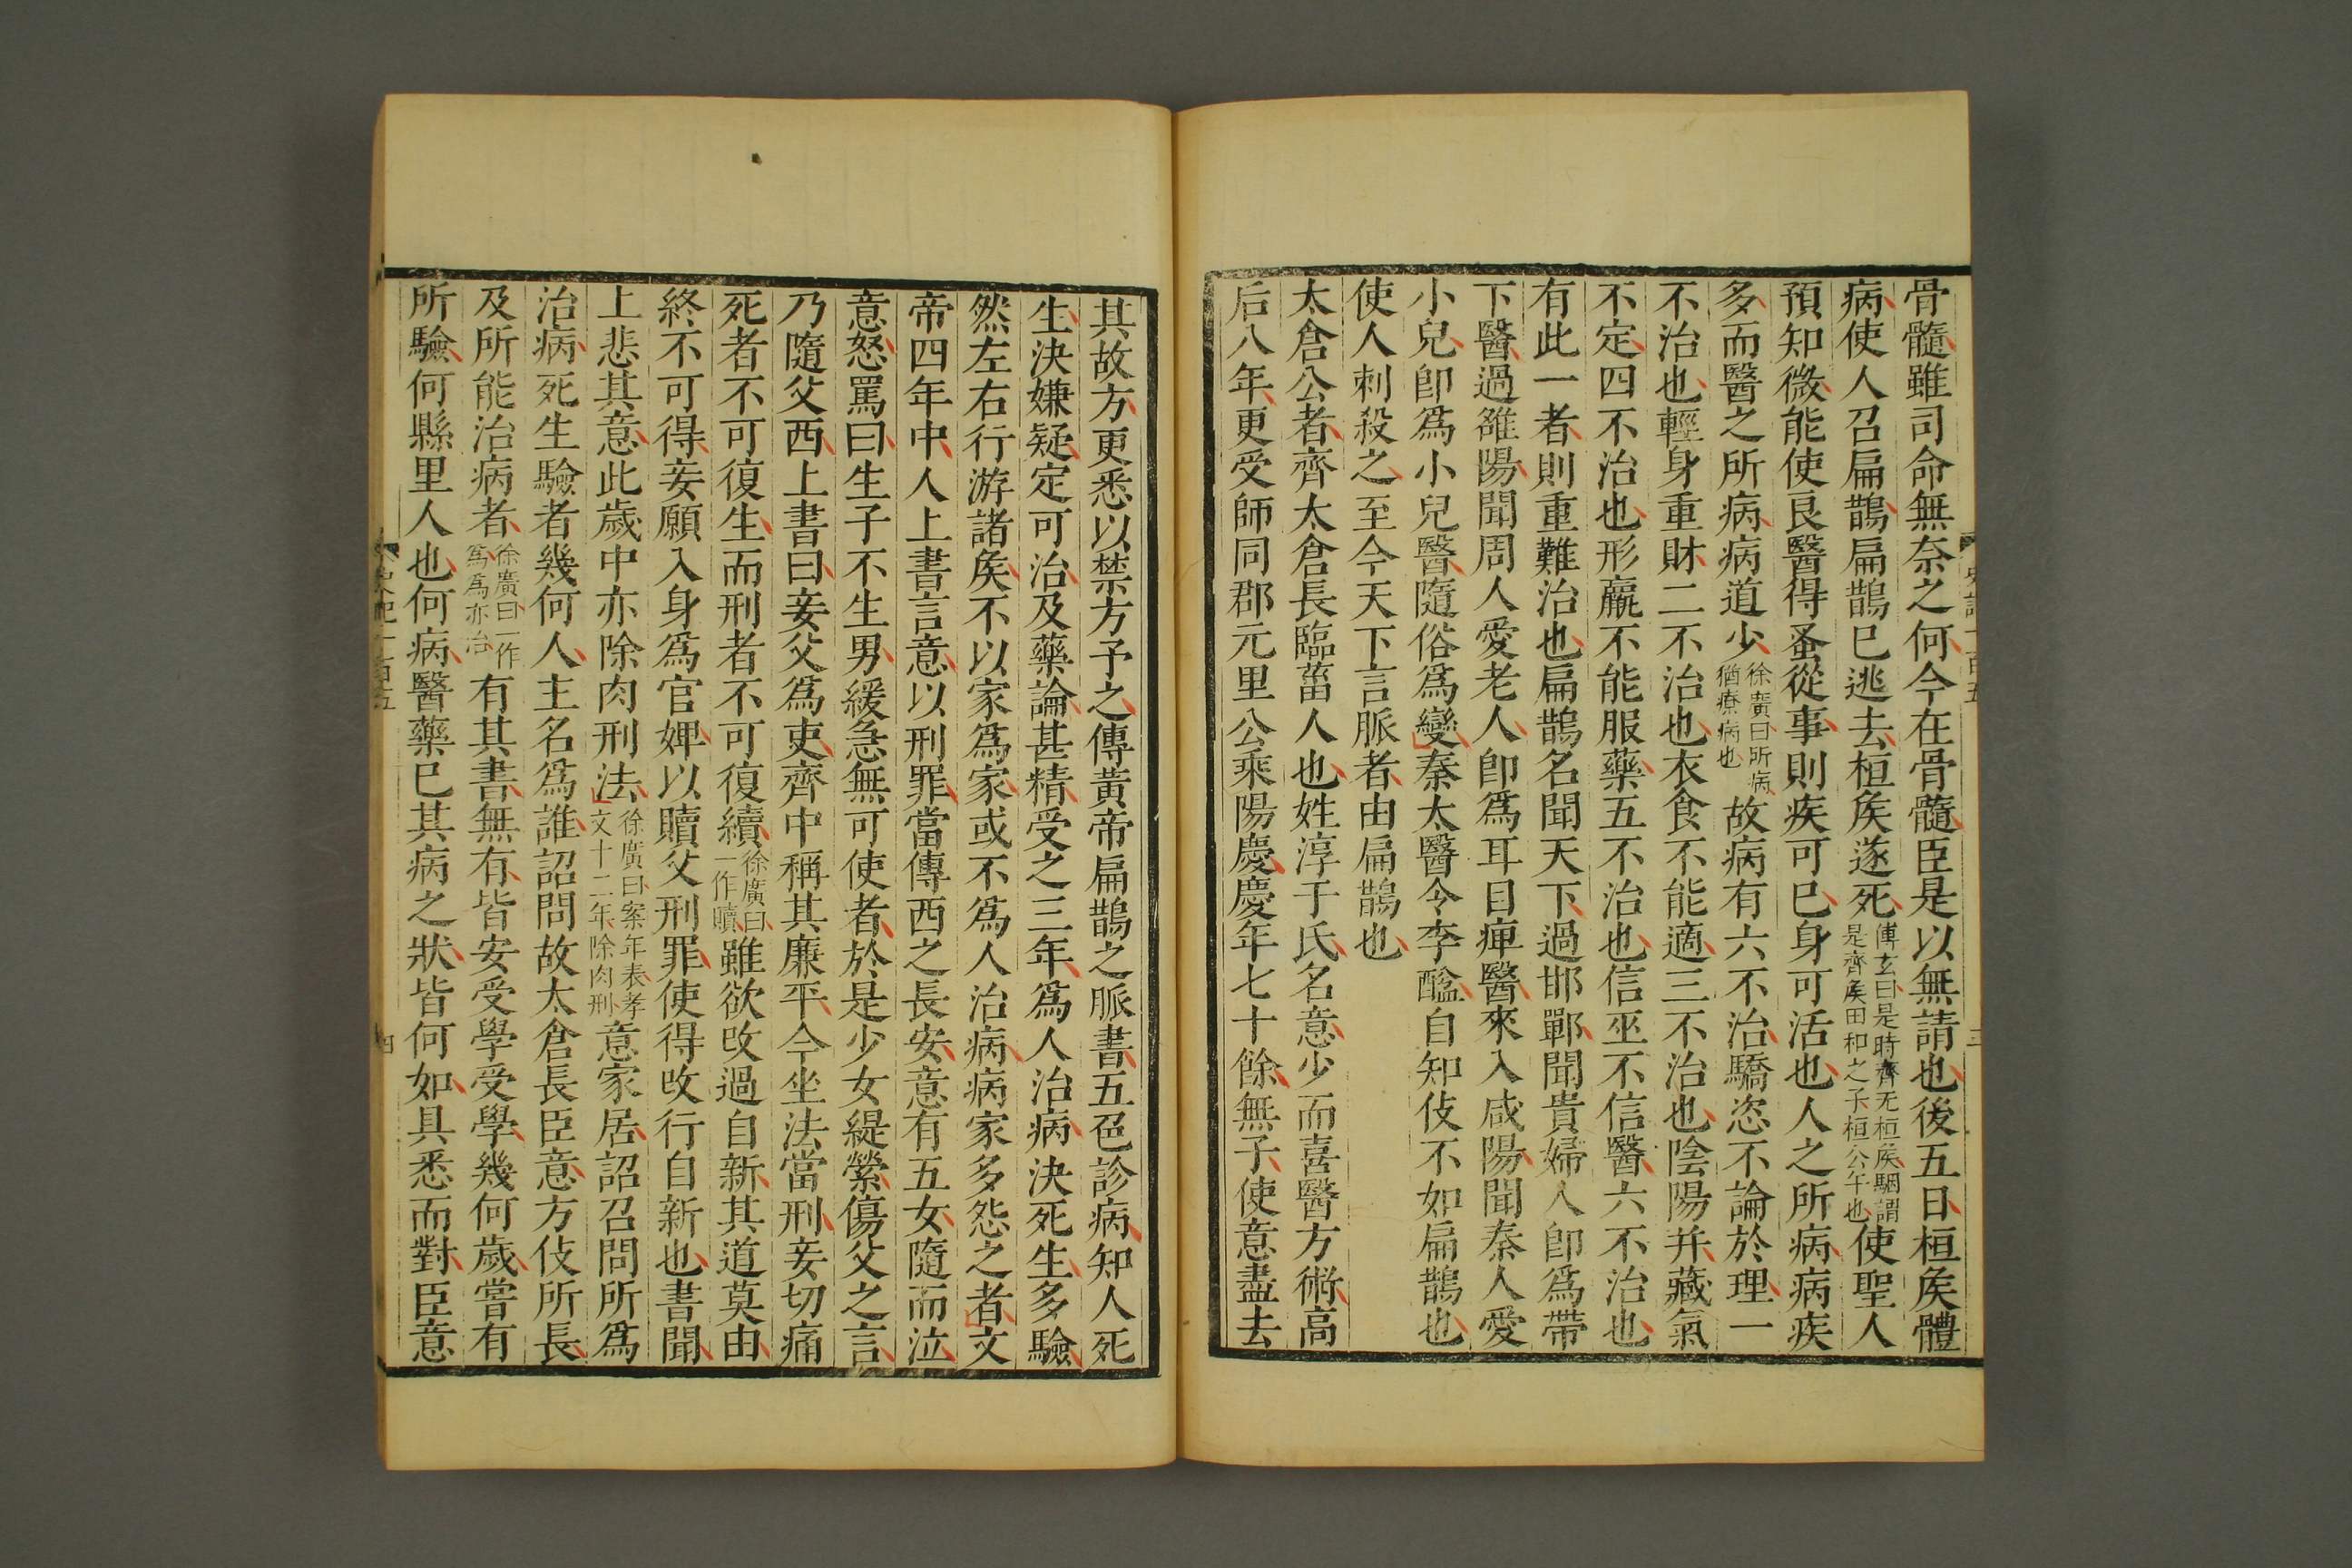 骨髓雖司命無奈之何今在骨髓臣是以無請也後五日桓矦體
病使人召扁鵲扁鵲已逃去桓矦遂死傅玄曰是時齊无桓矦駰謂是齊矦田和之子桓公午也使聖人
預知微能使良醫得蚤從事則疾可已身可活也人之所病病疾
多而醫之所病病道少徐廣曰所病猶療病也故病有六不治驕恣不論於理一
不治也輕身重財二不治也衣食不能適三不治也陰陽并藏氣
不定四不治也形羸不能服藥五不治也信巫不信醫六不治也
有此一者則重難治也扁鵲名聞天下過邯鄲聞貴婦人卽爲帶
下醫過雒陽聞周人愛老人卽爲耳目痺醫來入咸陽聞秦人愛
小兒卽爲小兒醫隨俗爲變秦太醫令李醯自知伎不如扁鵲也
使人刺殺之至今天下言脈者由扁鵲也
太倉公者齊太倉長臨菑人也姓淳于氏名意少而喜醫方術高
后八年更受師同郡元里公乘陽慶慶年七十餘無子使意盡去
其故方更悉以禁方予之傳黃帝扁鵲之脈書五色診病知人死
生決嫌疑定可治及藥論甚精受之三年爲人治病決死生多驗
然左右行游諸矦不以家爲家或不爲人治病病家多怨之者文
帝四年中人上書言意以刑罪當傳西之長安意有五女隨而泣
意怒罵曰生子不生男緩急無可使者於是少女緹縈傷父之言
乃隨父西上書曰妾父爲吏齊中稱其廉平今坐法當刑妾切痛
死者不可復生而刑者不可復續徐廣曰一作贖雖欲改過自新其道莫由
終不可得妾願入身爲官婢以贖父刑罪使得改行自新也書聞
上悲其意此歲中亦除肉刑法徐廣曰案年表孝文十二年除肉刑意家居詔召問所爲
治病死生驗者幾何人主名爲誰詔問故太倉長臣意方伎所長
及所能治病者徐廣曰一作爲爲亦治有其書無有皆安受學受學幾何歲嘗有
所驗何縣里人也何病醫藥已其病之狀皆何如具悉而對臣意
史記一百五
三
史記一百五
四